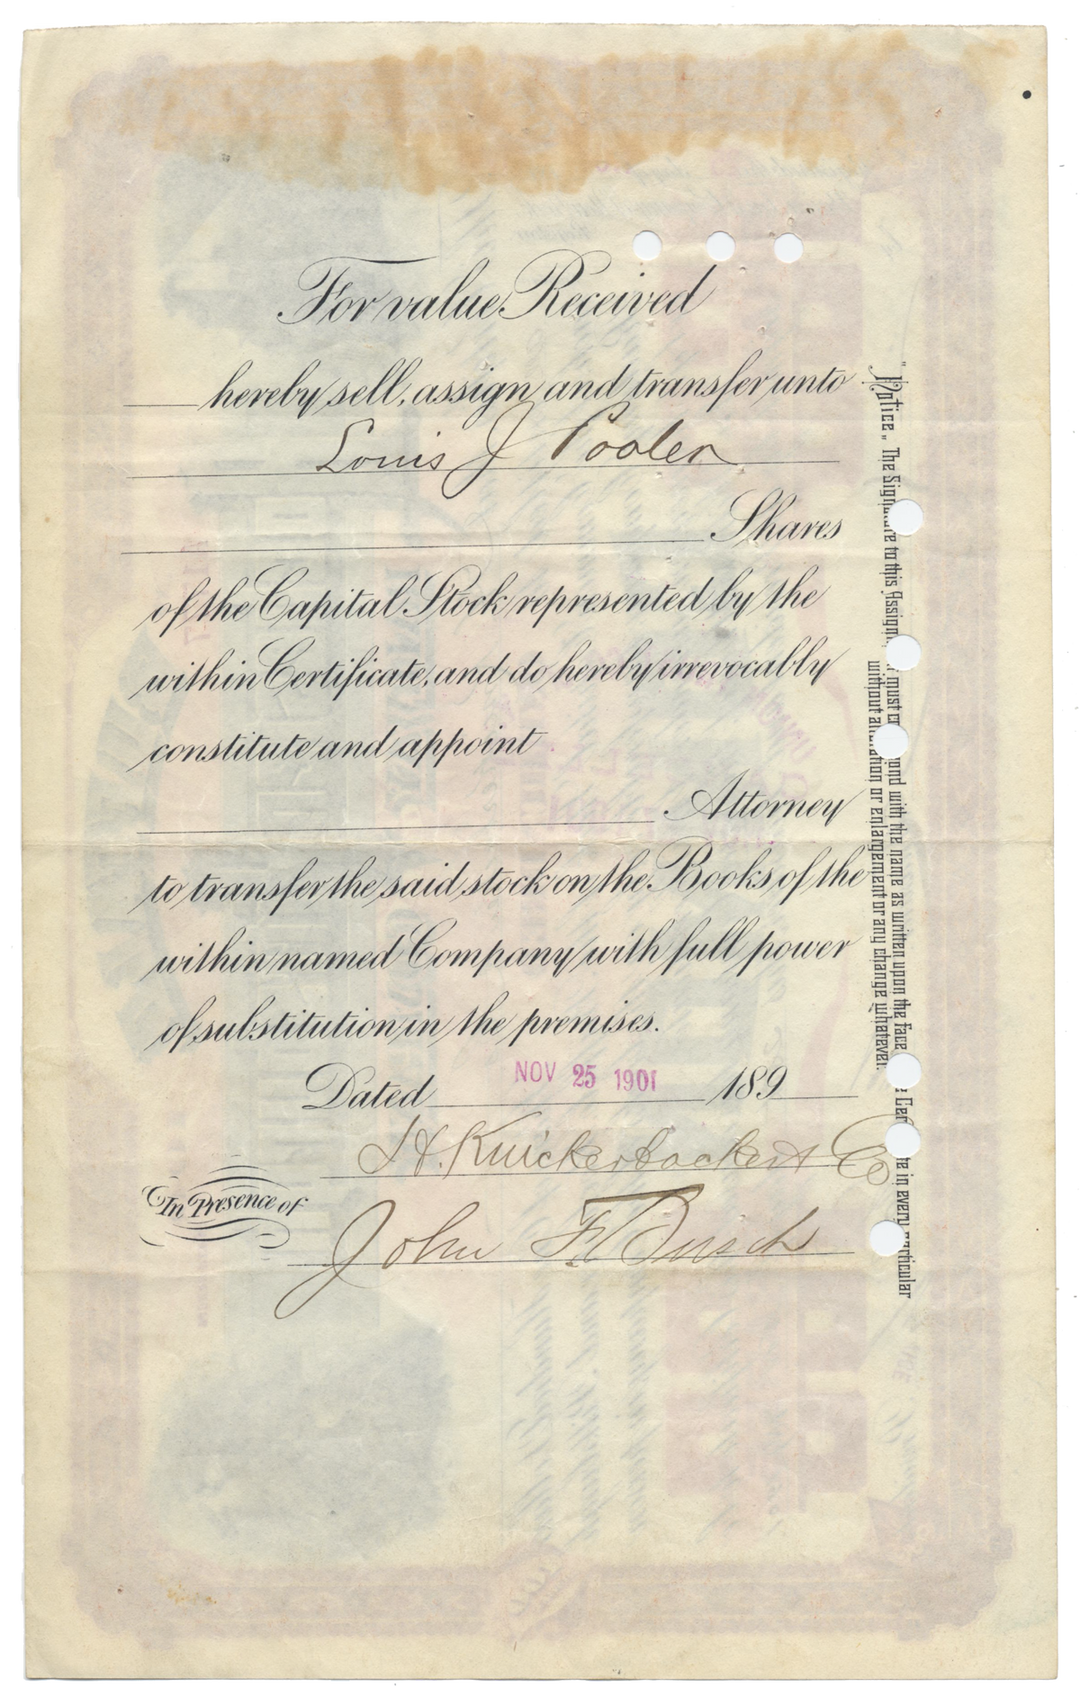 For value Received
hereby sell, assign and transfer unto
Louis J Poolen
Shares
of the Capital Stock represented by the
within Certificate, and do hereby irrevocably
constitute and appoint
Attorney
to transfer the said stock on the Books of the
within named Company with full power
of substitution in the premises.
Dated NOV 25 1901 189
H. Knickerbocker & Co
In Presence of
John F. Busch
"Notice." The Signature to this Assignment must correspond with the name as written upon the face of the Certificate in every particular
without alteration or enlargement or any change whatever.